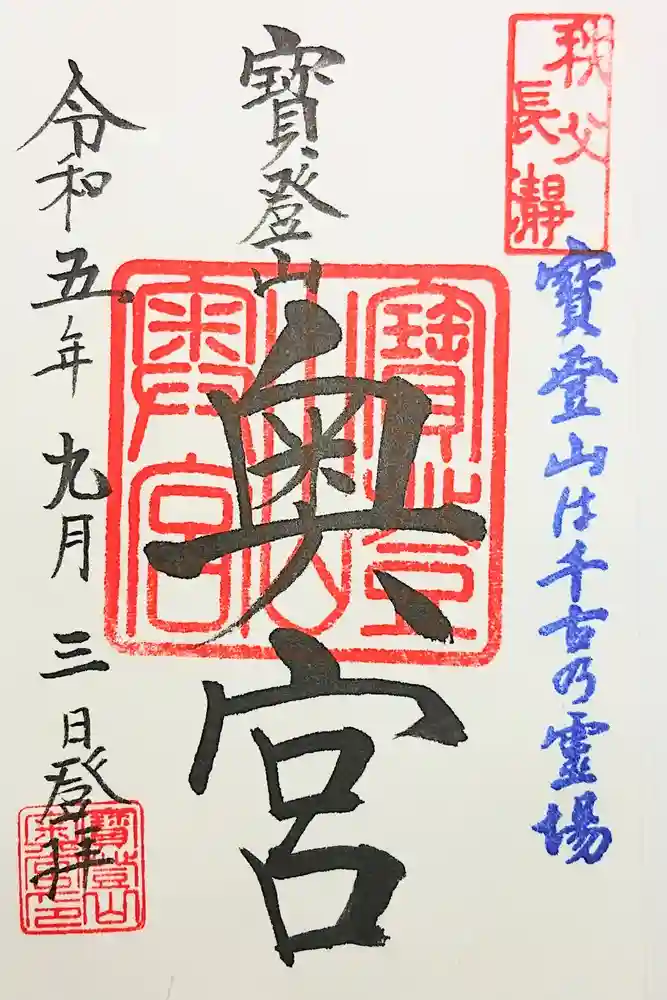 秩父
長瀞
寶登山は千古乃霊場
寶登山
奥宮
寶登山
奥宮
令和五年九月三日登拝
寶登山